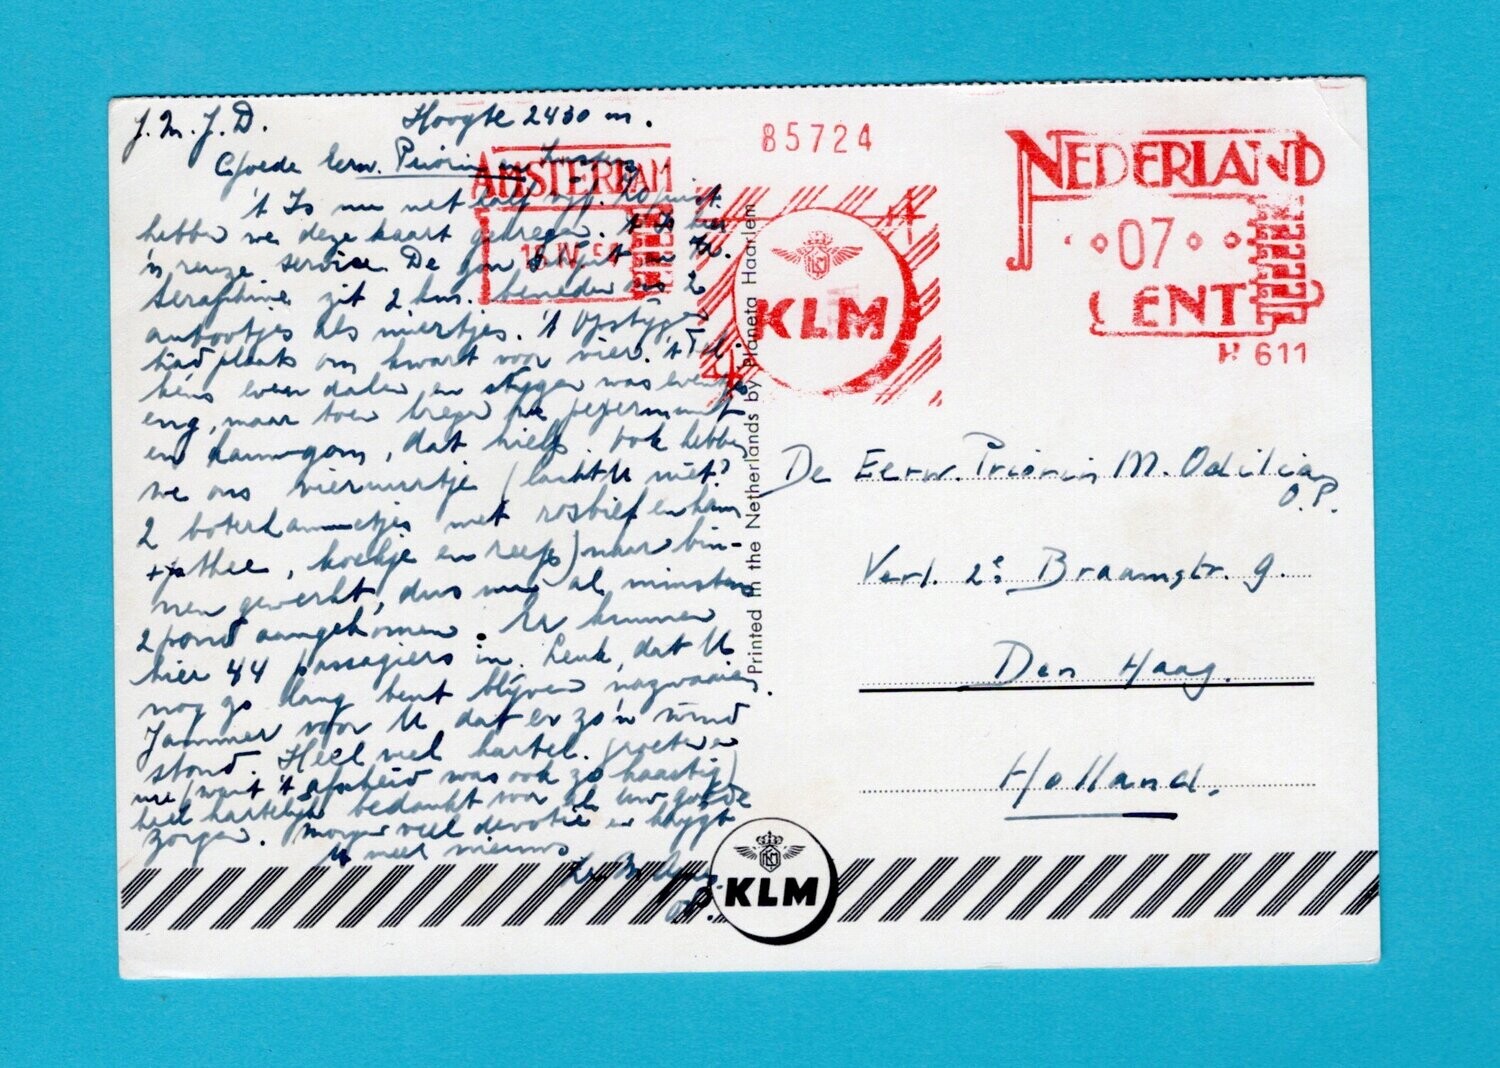 J. M. J. D.
Hoogte 2430 m.
Goede Eerw. Priorin en Zusters
't Is nu net half vijf. Zo juist
hebben we deze kaart gekregen. 't Is hier
'n reuze service. De
Seraphine zit 2 km. beneden ons
autootjes als miertjes. 't Opstijgen
had plaats om kwart voor vier. 't Tel-
kens weer dalen en stijgen was even
eng, maar toen kregen we pepermunt
en kauwgom, dat hielp. Ook hebben
we ons vieruurtje (lacht U niet?
2 boterhammetjes met rosbief en ham
+ thee, koekje en reep) naar bin-
nen gewerkt, dus nu al minstens
2 pond aangekomen. Er kunnen
hier 44 passagiers in. Leuk, dat U
nog zo lang bent blijven nazwaaien
Jammer voor U dat er zo'n wind
stond. Heel veel hartel. groeten
(want 't afscheid was ook zo haastig)
heel hartelijk bedankt voor al uw goede
zorgen. Morgen veel devotie en krijgt
U meer nieuws
Zr. M.
O.P.
AMSTERDAM
IV 54
85724
KLM
NEDERLAND
07
CENT
H 611
Printed in the Netherlands by Planeta Haarlem
De Eerw. Priorin M. Odilia
O.P.
Verl. 2e Braamstr. 9.
Den Haag.
Holland.
KLM